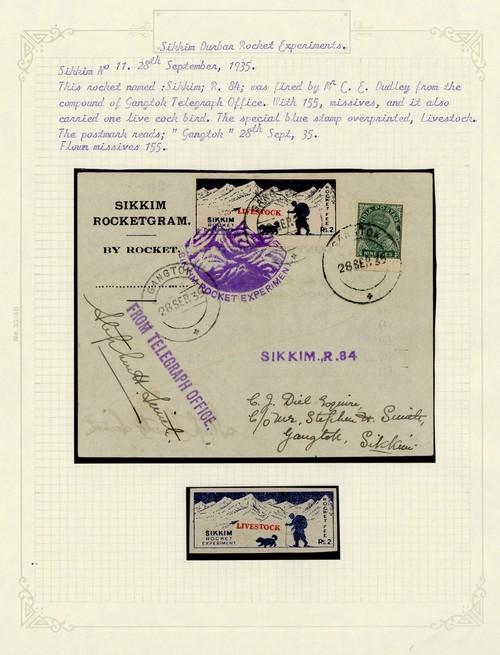 Sikkim Durbar Rocket Experiments.
Sikkim No 11. 28th September, 1935.
This rocket named :Sikkim; R. 84; was fired by Mr C. E. Dudley from the
compound of Gangtok Telegraph Office. With 155, missives, and it also
carried one live cock bird. The special blue stamp overprinted, Livestock.
The postmark reads; " Gangtok " 28th Sept, 35.
Flown missives 155.
SIKKIM
ROCKETGRAM.
BY ROCKET.
LIVESTOCK
SIKKIM
ROCKET
ROCKET FEE
Rs. 2
NINE PIES
GANGTOK
28 SEP. 35
SIKKIM ROCKET EXPERIMENT
GANGTOK
28 SEP. 35
FROM TELEGRAPH OFFICE.
Stephen H. Smith.
SIKKIM.R.84
C. J. Diel Esquire,
C/o Mr. Stephen H. Smith,
Gangtok,
Sikkim.
LIVESTOCK
SIKKIM
ROCKET
EXPERIMENT
ROCKET FEE
Rs. 2